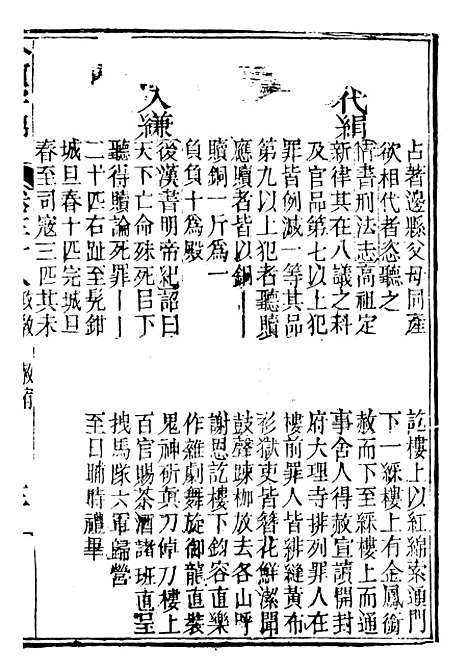 占著邊縣父母同産
欲相代者恣聽之
代絹
隋書刑法志高祖定
新律其在八議之科
及官品第七以上犯
罪皆例減一等其品
第九以上犯者聽贖
應贖者皆以銅——
贖銅一斤爲一
負負十爲殿
入縑
後漢書明帝紀詔曰
天下亡命殊死目下
聽得贖論死罪——
二十匹右趾至髡鉗
城旦舂十匹完城旦
舂至司寇三匹其未
訖樓上以紅綿索通門
下一綵樓上有金鳳銜
赦而下至綵樓上而通
事舍人得赦宣讀開封
府大理寺排列罪人在
樓前罪人皆緋縫黃布
衫獄吏皆簪花鮮潔聞
鼓聲疎枷放去各山呼
謝恩訖樓下鈞容直樂
作雜劇舞旋御龍直裝
鬼神斫眞刀倬刀樓上
百官賜茶酒諸班直呈
拽馬隊六軍歸營
至日晡時禮畢